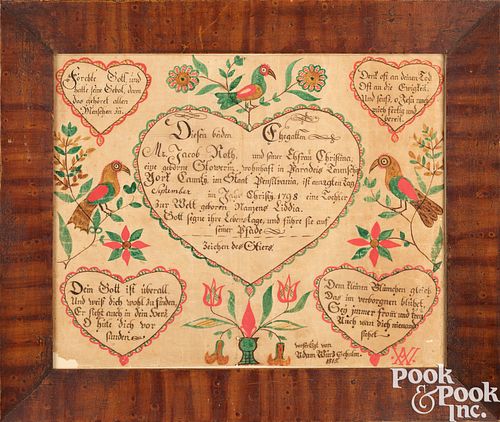 Förchte Gott und
halte seine Gebot, dann
das gehöret allen
Menschen zu.
Denk oft an deinen Tod
Oft an die Ewigkeit.
Und sonst, o Jesu mach
mich fertig und
bereit.
Diesen beiden Ehegatten
Mr. Jacob Roth, und seiner Ehefrau Christina,
eine geborne Stowerin, wohnhaft in Paradeis Taunschip
York Caunty, im Staat Pensilvania, ist am zigsten Tag
September im Jahr Christi, 1798 eine Tochter
zur Welt geboren Namens Liddia.
Gott segne ihre Lebenstage, und führe sie auf
seiner Pfade.
Zeichen des Stiers.
Dein Gott ist überall,
Und weiß dich wohl zu finden,
Er sieht auch in dein Herz
O hüte dich vor
sünden.
Dem kleinen Blümchen gleich
Das im verborgnen blühet,
Sey immer fromm und
Auch wan dich niemand
siehet.
verfertigt von
Adam
1815.
AW
POOK
& POOK
Inc.